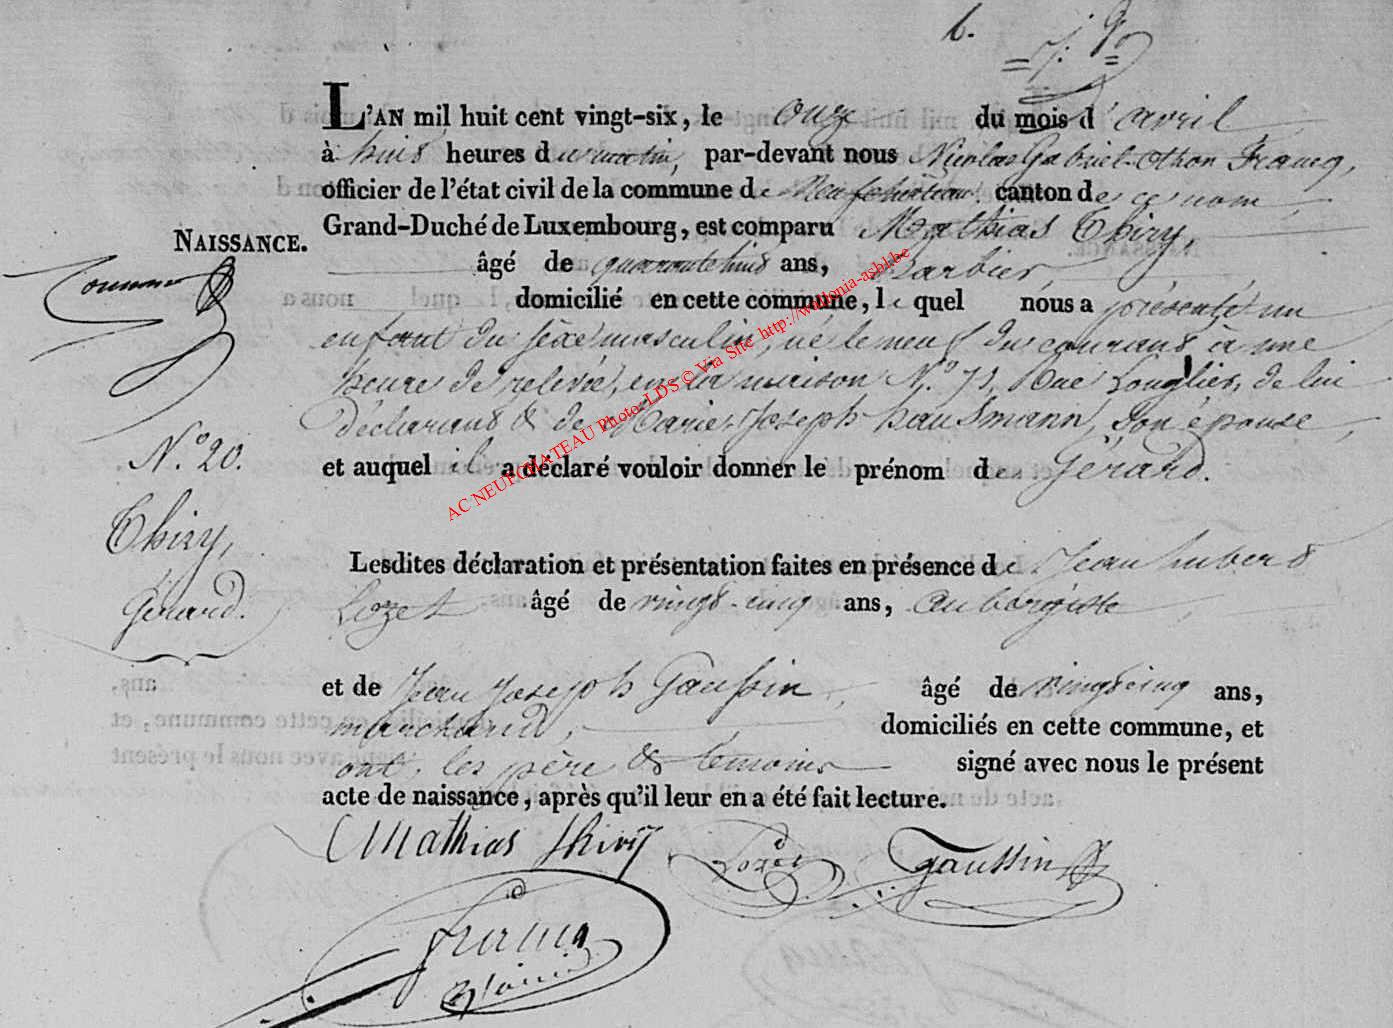 6.
L'AN mil huit cent vingt-six, le onze du mois d'avril
à huit heures du matin, par-devant nous Nicolas Gabriel Othon Francq,
officier de l'état civil de la commune de Neufchâteau canton de ce nom
Grand-Duché de Luxembourg, est comparu Mathias Thiry,
NAISSANCE.
âgé de quarantehuit ans, Barbier,
domicilié en cette commune, le quel nous a présenté un
enfant du sèxe masculin, né le neuf du courant à une
heure de relevée, en la maison N.º 71, Rue Longlier, de lui
déclarant & de Marie Joseph hausmann, son épouse,
N.º 20.
et auquel il a déclaré vouloir donner le prénom de Gérard.
Thiry,
Gérard.
Lesdites déclaration et présentation faites en présence de Jean hubert
Lozet âgé de vingt-cinq ans, aubergiste
et de Jean Joseph Gaussin, âgé de vingtcinq ans,
marchand, domiciliés en cette commune, et
ont, les père & temoins signé avec nous le présent
acte de naissance, après qu'il leur en a été fait lecture.
Mathias thiry Lozet gaussin
Francq
AC NEUFCHATEAU Photo: LDS © Via Site http://wallonia-asbl.be